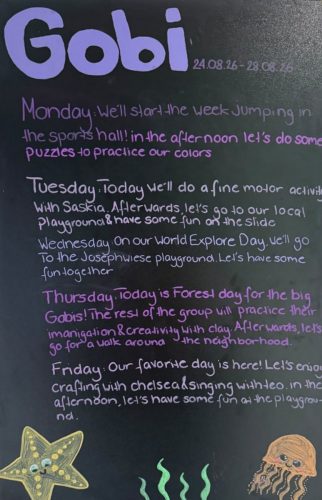 Gobi
24.08.26 - 28.08.26
Monday: We'll start the week Jumping in
the sports hall! in the afternoon let's do some
puzzles to practice our colors
Tuesday: Today we'll do a fine motor activity
With Saskia. Afterwards, let's go to our local
playground & have some fun on the slide
Wednesday: On our World Explore Day, we'll go
To the Josephwiese playground. Let's have some
fun together
Thursday: Today is Forest day for the big
Gobis! The rest of the group will practice their
imanigation & creativity with clay. Afterwards, let's
go for a walk around the neighborhood.
Friday: Our favorite day is here! Let's enjoy
crafting with chelsea & singing with teo. in the
afternoon, let's have some fun at the playgrou-
nd.